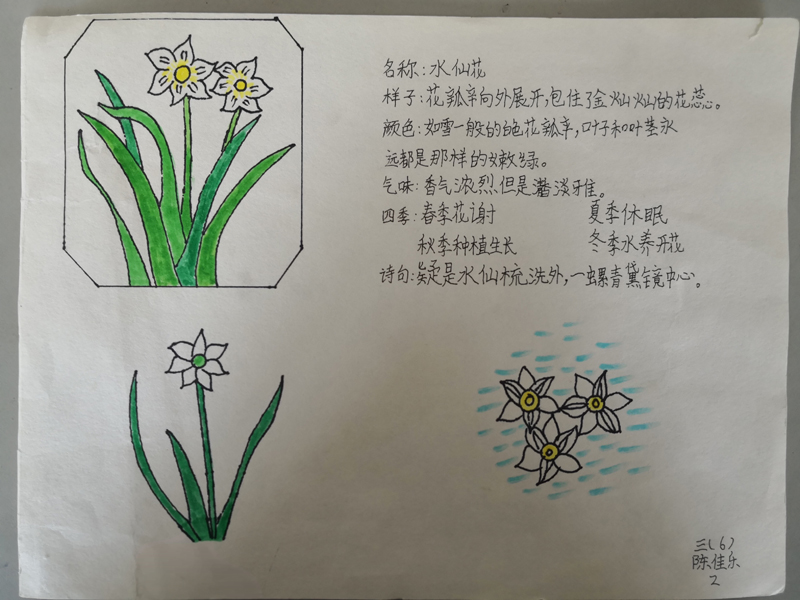 名称：水仙花
样子：花瓢辛向外展开，包住了金灿灿的花蕊。
颜色：如雪一般的白色花瓢辛，叶子和叶茎永
远都是那样的嫩绿。
气味：香气浓烈，但是潜淡雅。
四季：春季花谢 夏季休眠
秋季种植生长 冬季水养开花
诗句：疑是水仙梳洗外，一螺青黛镜中心。
三（6）
陈佳乐
2